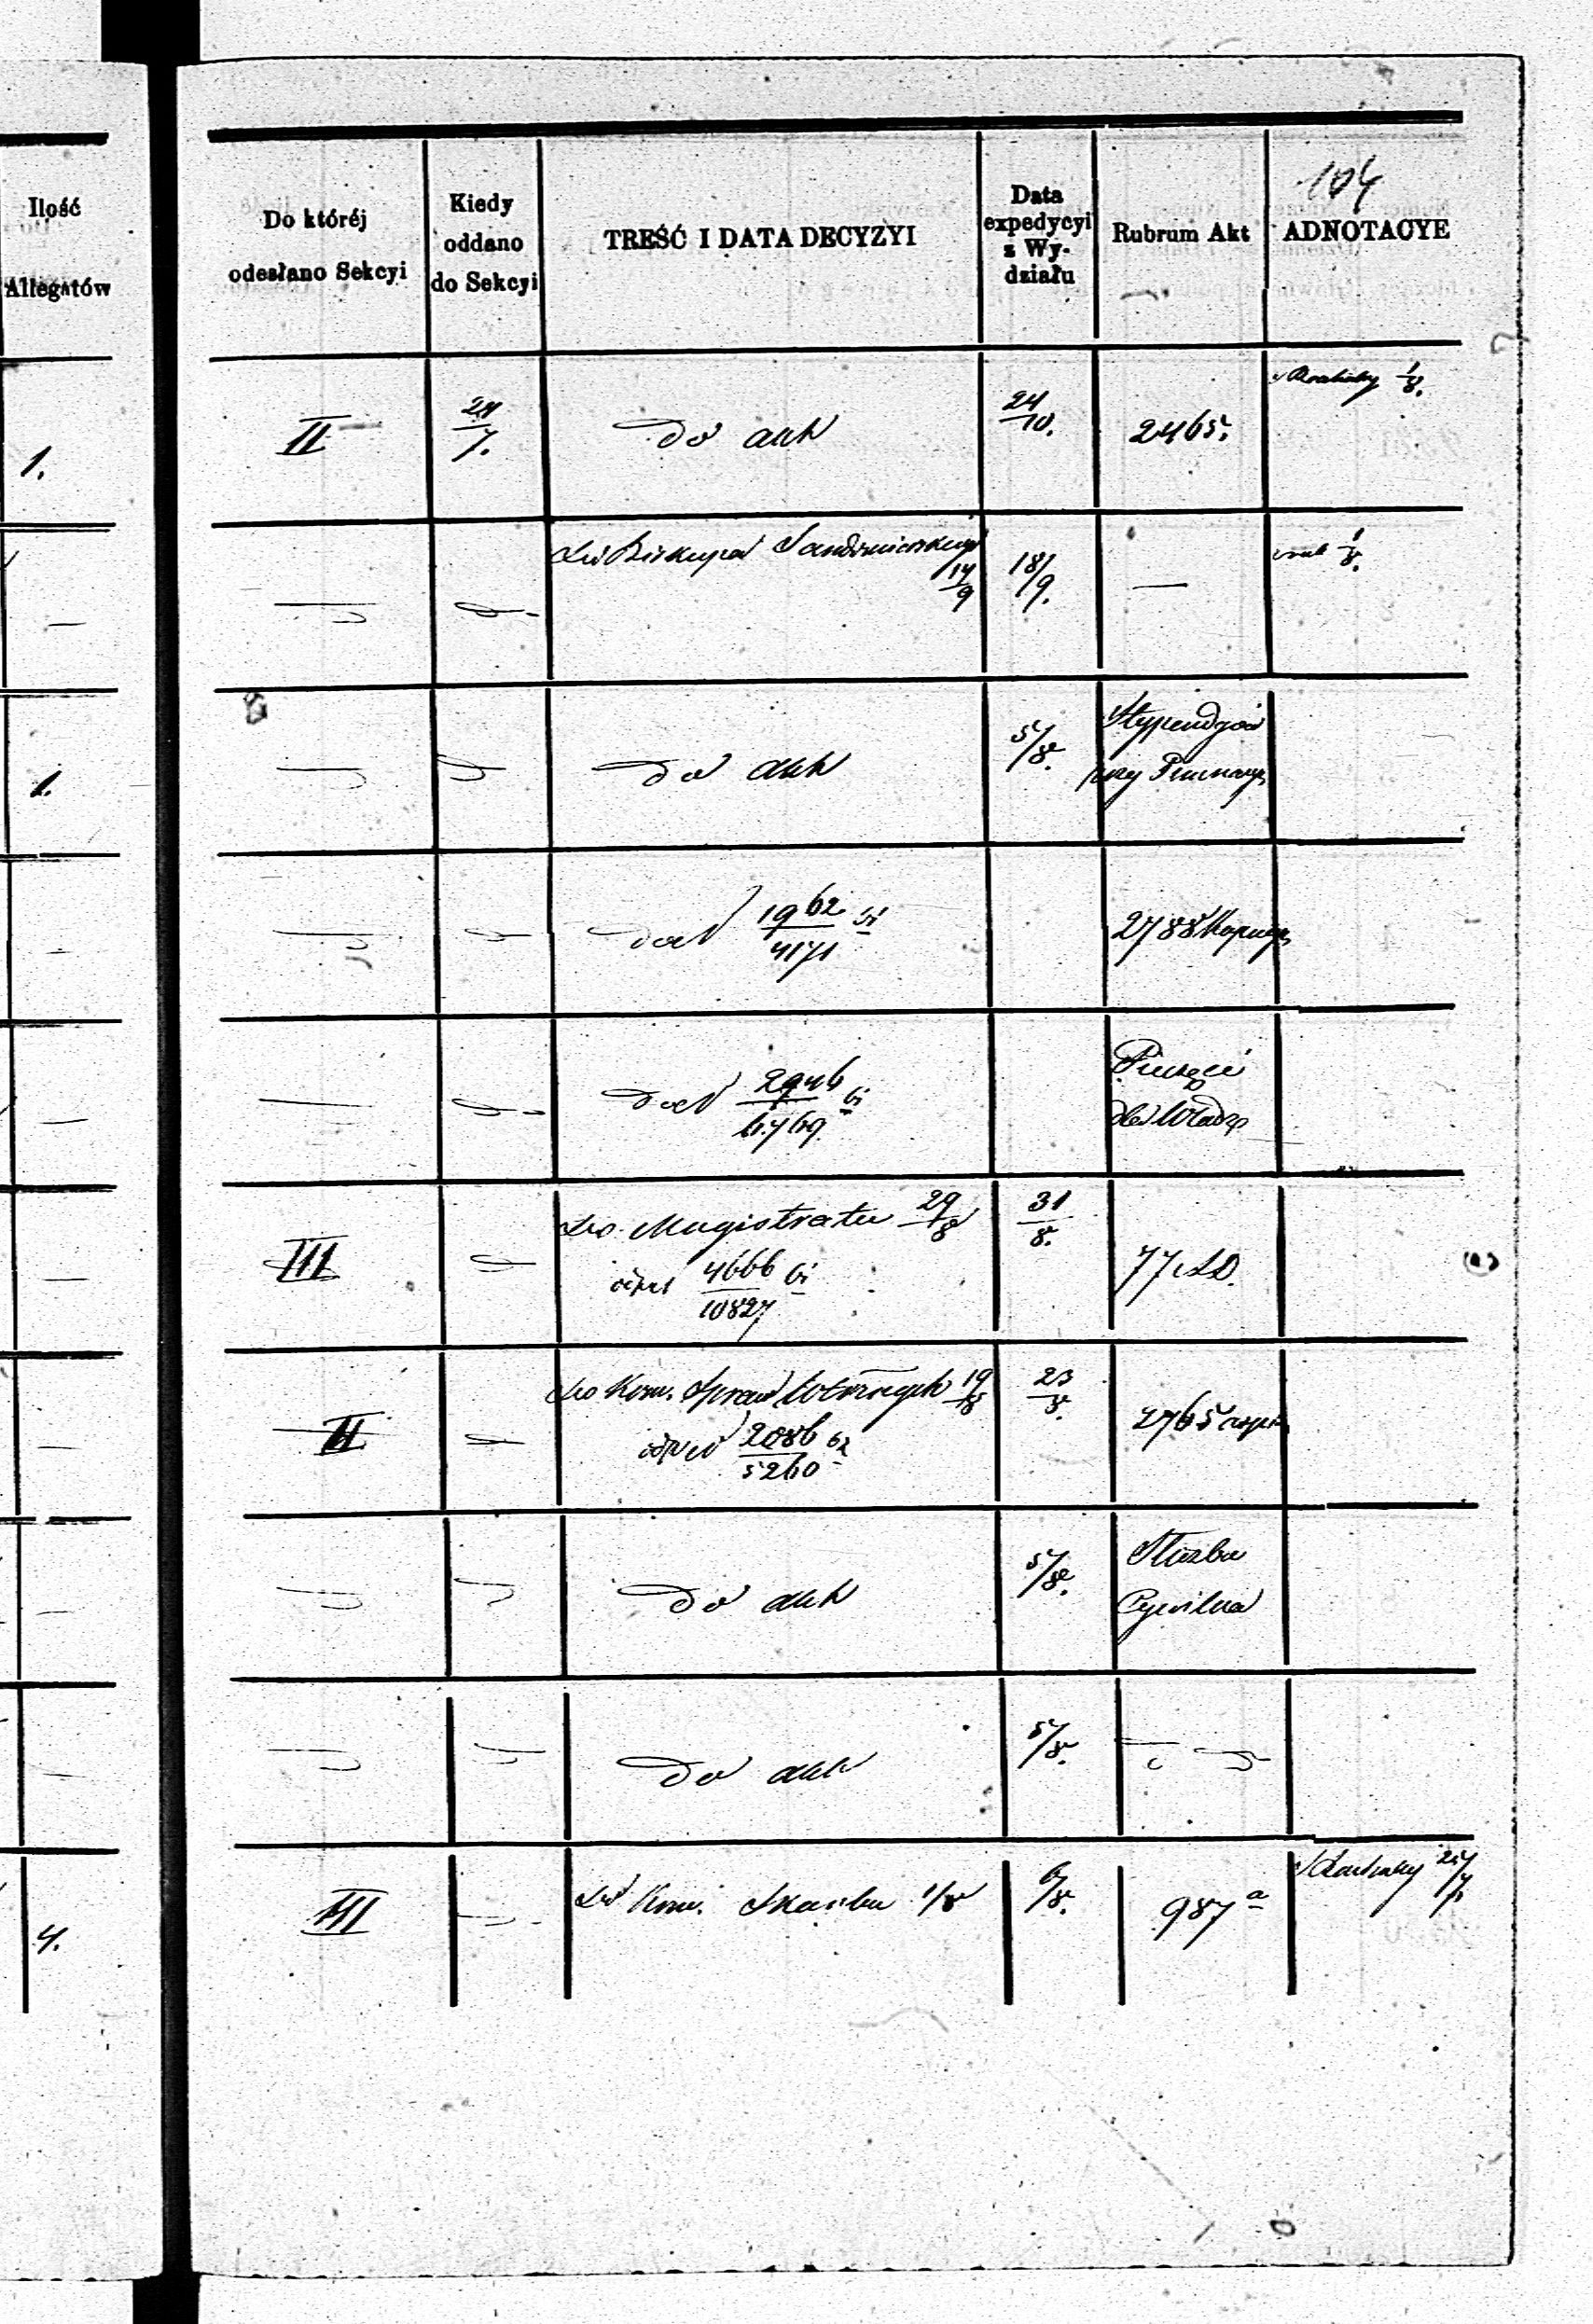 104
Ilość
Allegatów
Do któréj
odesłano Sekcyi
Kiedy
oddano
do Sekcyi
TREŚĆ I DATA DECYZYI
Data
expedycyi
z Wy-
działu
Rubrum Akt
ADNOTACYE
1.
II
24/7.
do akt
24/10.
2465.
1/8.
—
Do Biskupa Sandomierskiego
14/9
18/9.
—
1/8.
1.
do akt
5/8.
Stypendja
przy
—
1962/4171
2788
—
2946/6769
Pieczęci
dla Władz
III
Do Magistratu 29/8
4666/10827
31/8.
77
II
Do Kom. Spraw Wewnętrznych 19/8
2086/5260
23/8.
2765
—
do akt
5/8.
Służba
Cywilna
—
do akt
5/8.
4.
III
Do Kom. Skarbu 1/8
6/8.
987 a